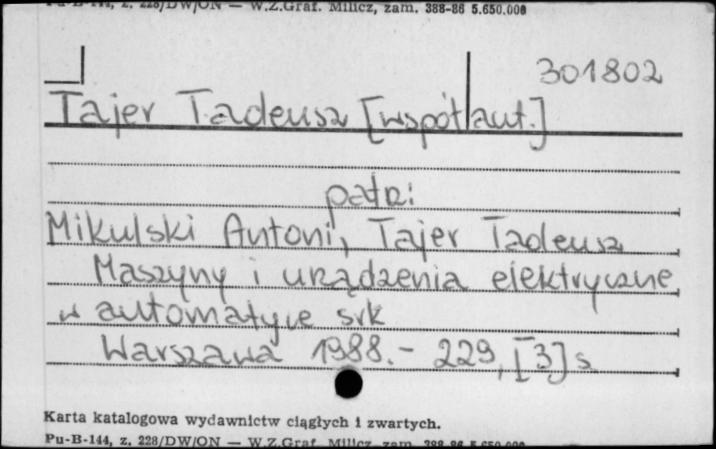 Pu-B-144, z. 228/DW/ON — W.Z.Graf. Milicz, zam. 388-86 5.650.000
301802
Tajer Tadeusz [współaut.]
patrz:
Mikulski Antoni, Tajer Tadeusz
Maszyny i urządzenia elektryczne
w automatyce srk
Warszawa 1988. - 229, [3] s
Karta katalogowa wydawnictw ciągłych i zwartych.
Pu-B-144, z. 228/DW/ON — W.Z.Graf. Milicz, zam. 388-86 5.650.000